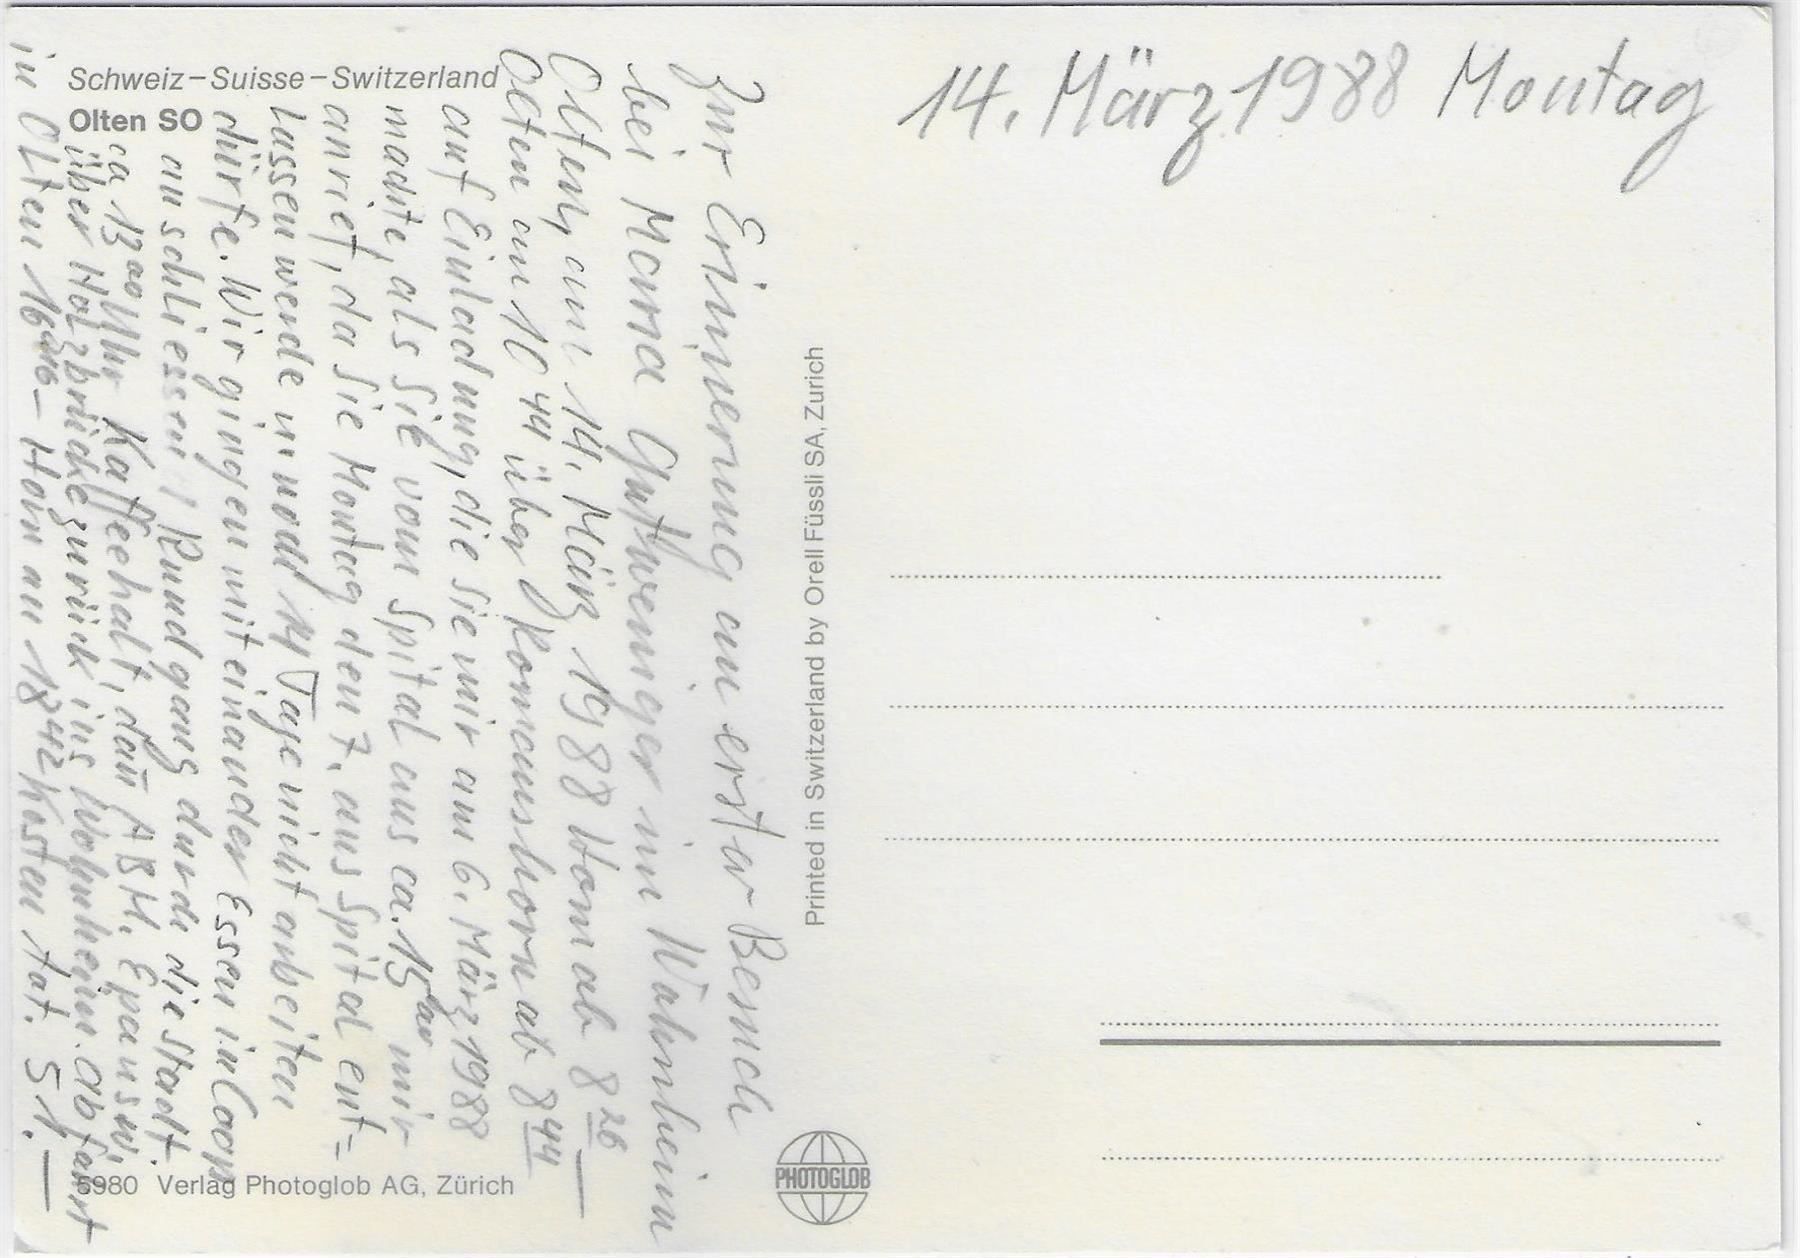 Schweiz–Suisse–Switzerland
Olten SO
14. März 1988 Montag
Zur Erinnerung an erster Besuch
bei Mama Gutweniger im Wohnheim
Olten, am 14. März 1988 Hom ab 8 26
Olten an 10 44 über Romanshorn ab 8 44
auf Einladung, die sie mir am 6. März 1988
machte, als Sie vom Spital aus ca. 15 mir
anrief, da Sie Montag den 7. aus Spital ent=
lassen werde u noch 14 Tage nicht arbeiten
dürfe. Wir gingen miteinander Essen in Coop
anschliessen Rundgang durch die Stadt.
ca 13 00 Uhr Kaffeehalt, dan ABM. Epa usw.
über Holzbrücke zurück ins Wohnheim. Abfahrt
in Olten 16 – Hom an 18 42 Kosten tot. 51.—
Printed in Switzerland by Orell Füssli SA, Zurich
PHOTOGLOB
5980 Verlag Photoglob AG, Zürich